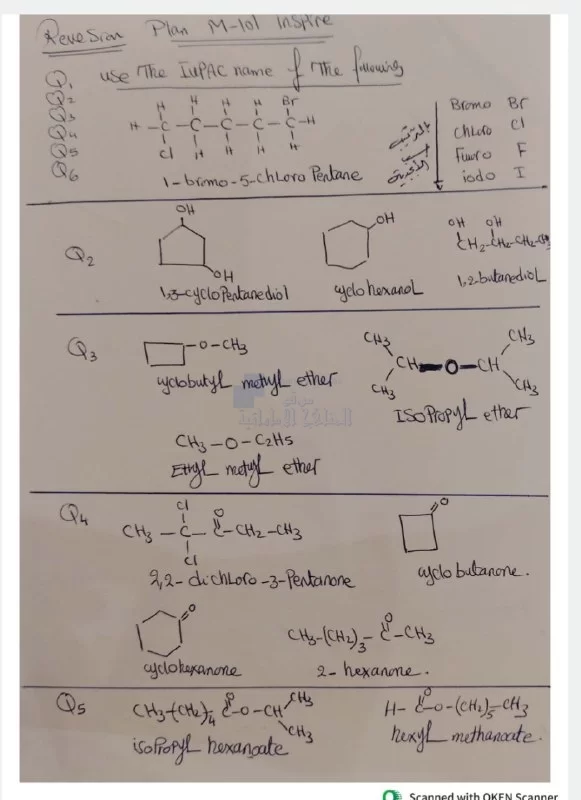 Reve sion Plan M-101 inspire
Q1
Q2
Q3
Q4
Q5
Q6
use The IUPAC name of The following
H H H H Br
H -C-C-C-C-C-H
Cl H H H H
1-bromo-5-chloro Pentane
Bromo Br
chloro Cl
Fluoro F
iodo I
Q2
OH
OH
1,3-cycloPentanediol
OH
cyclohexanol
OH OH
CH2-CH2-CH2-CH3
1,2-butanediol
Q3
-O-CH3
cyclobutyl methyl ether
CH3 CH3
CH-O-CH
CH3 CH3
ISOPropyL ether
موقع
المناهج الإماراتية
CH3-O-C2H5
Ethyl methyl ether
Q4
Cl O
CH3-C-C-CH2-CH3
Cl
2,2-dichloro-3-Pentanone
O
cyclobutanone.
O
cyclohexanone
O
CH3-(CH2)3-C-CH3
2-hexanone.
Q5
O CH3
CH3-(CH2)4 C-O-CH
CH3
isoPropyl hexanoate
O
H- C-O-(CH2)5-CH3
hexyl methanoate.
Scanned with OKEN Scanner